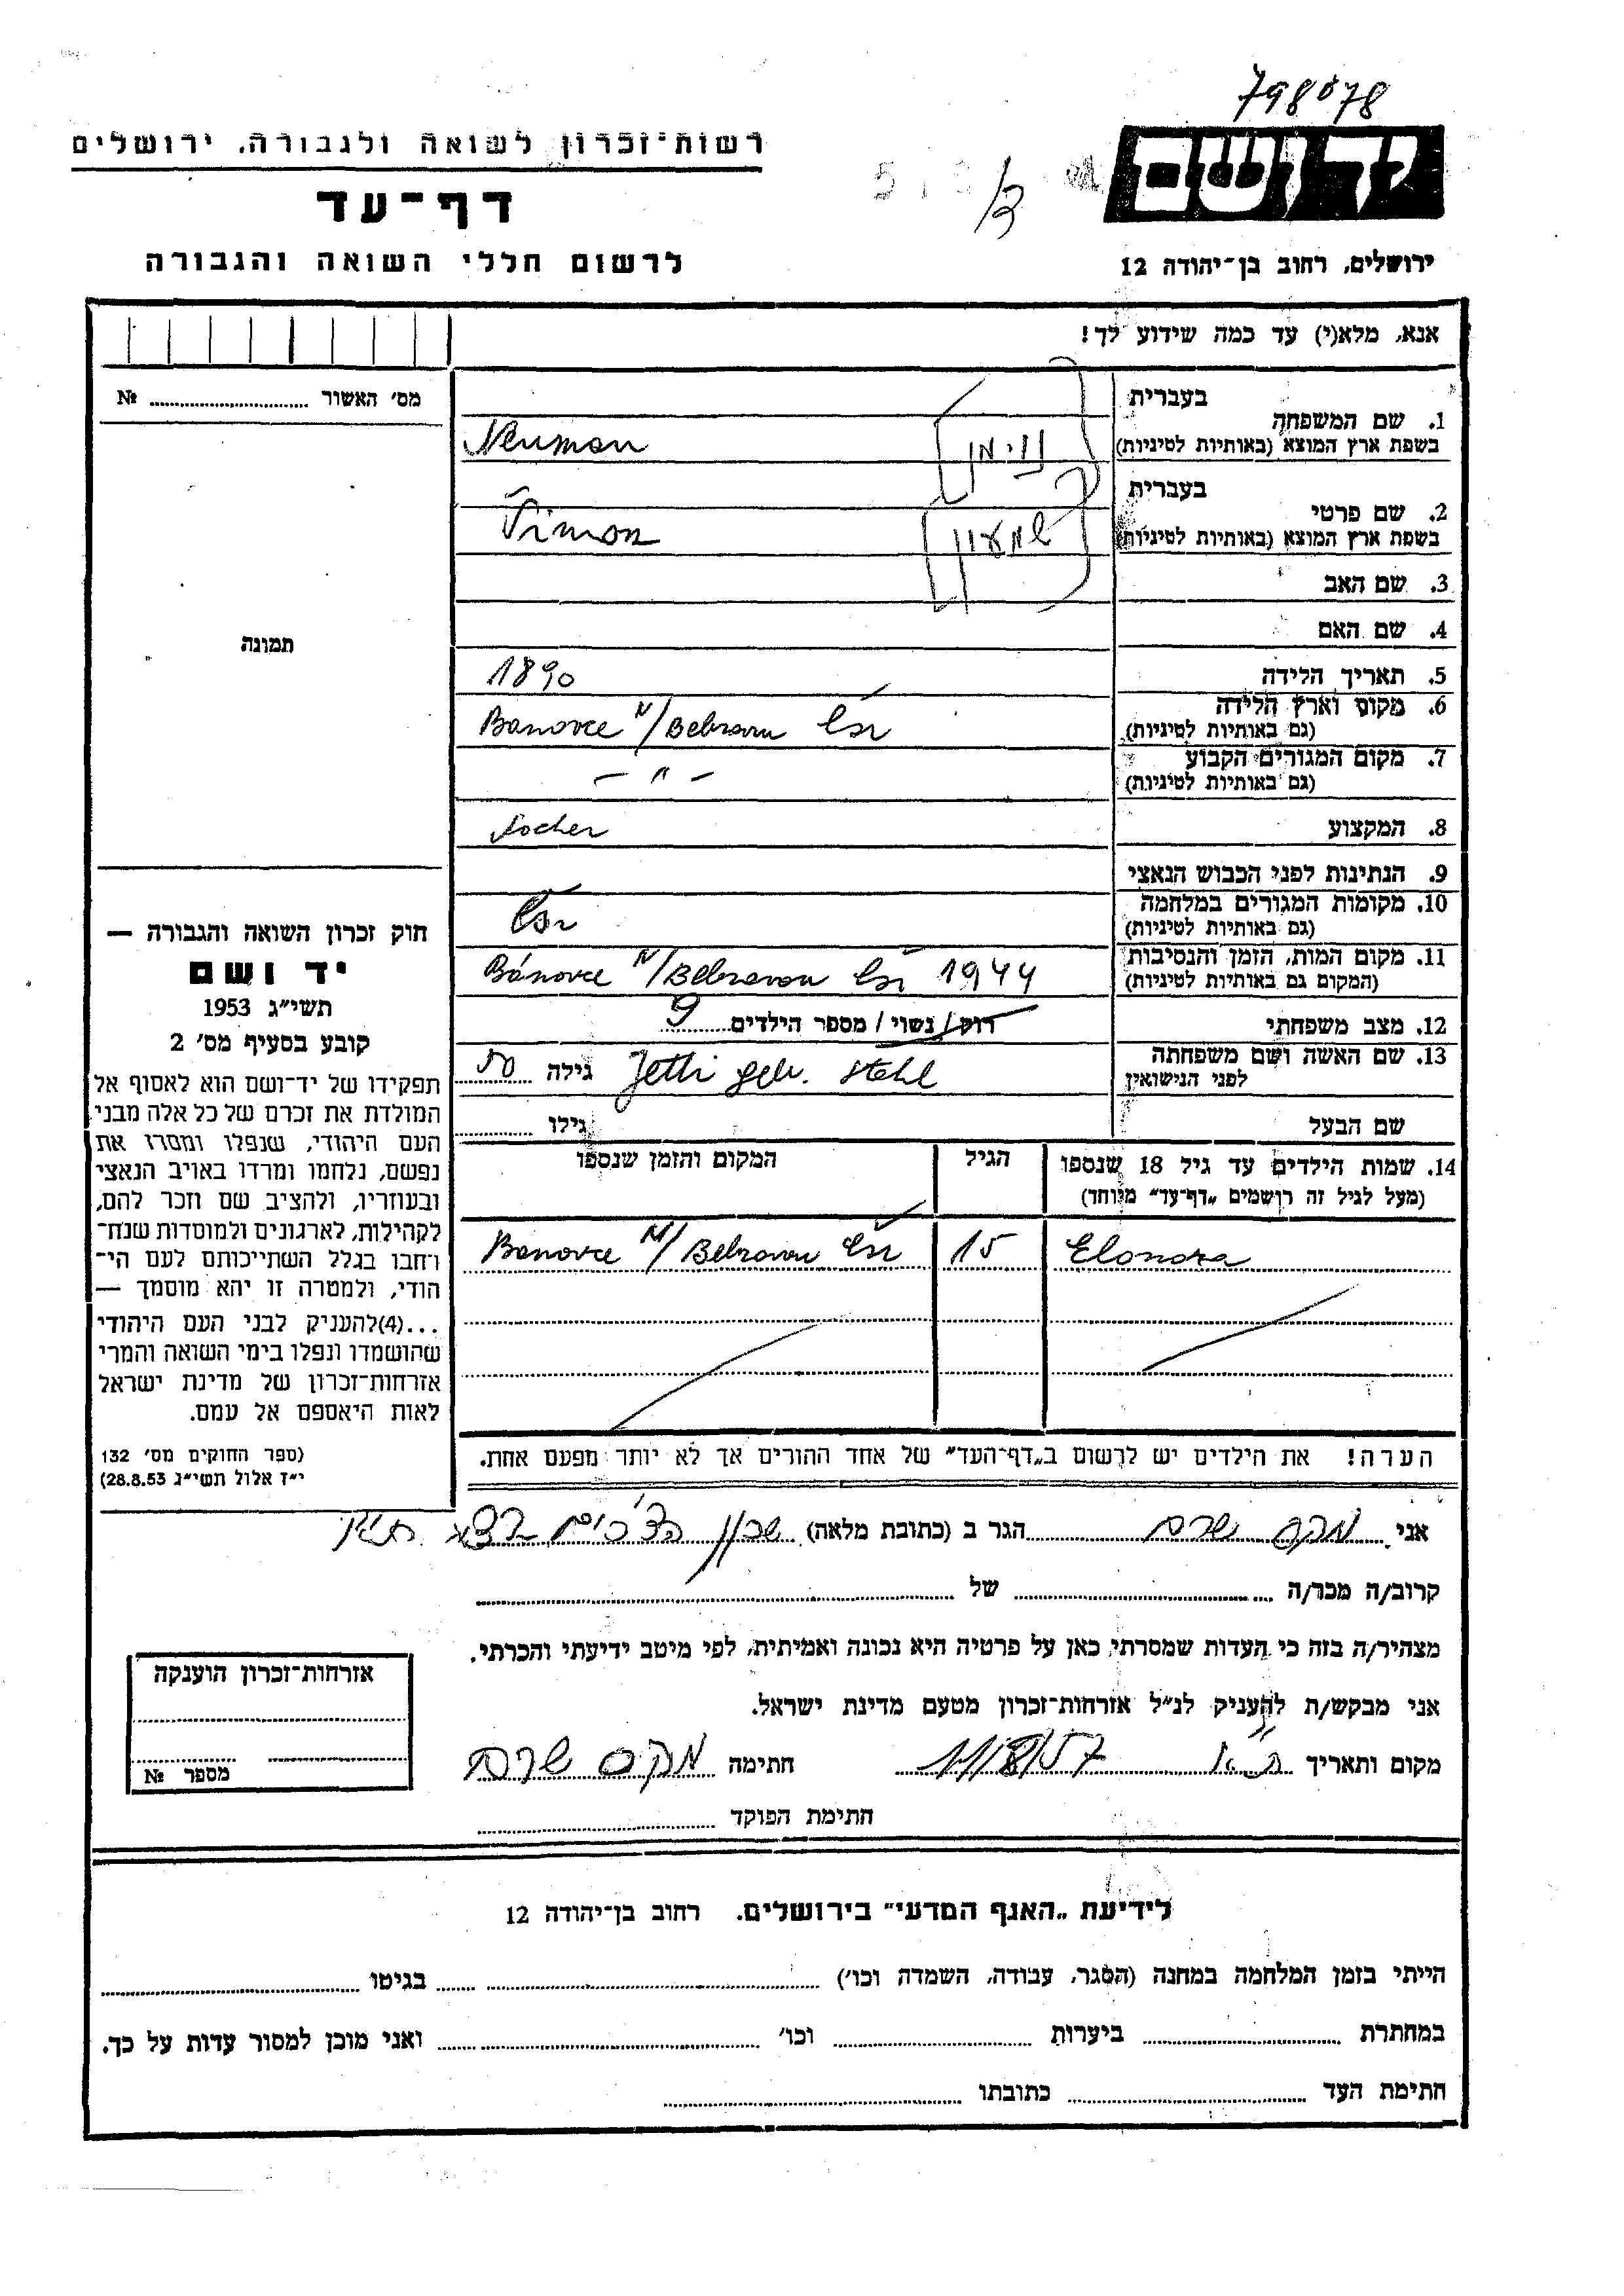 798078
רשות־זכרון לשואה ולגבורה, ירושלים
דף־עד
לרשום חללי השואה והגבורה
יד ושם
ירושלים, רחוב בן־יהודה 12
אנא, מלא(י) עד כמה שידוע לך!
מס׳ האשור № 
תמונה
1. שם המשפחה
בעברית
נוימן
בשפת ארץ המוצא (באותיות לטיניות)
Neuman
2. שם פרטי
בעברית
שמעון
בשפת ארץ המוצא (באותיות לטיניות)
Šimon
3. שם האב
4. שם האם
5. תאריך הלידה
1890
6. מקום וארץ הלידה
(גם באותיות לטיניות)
Banovce N/Bebravou Čsr
7. מקום המגורים הקבוע
(גם באותיות לטיניות)
— " —
8. המקצוע
Socher
9. הנתינות לפני הכבוש הנאצי
10. מקומות המגורים במלחמה
(גם באותיות לטיניות)
Čsr
11. מקום המות, הזמן והנסיבות
(המקום גם באותיות לטיניות)
Bánovce N/Bebravou Čsr 1944
12. מצב משפחתי
רווק / נשוי / מספר הילדים 9
13. שם האשה ושם משפחתה
לפני הנישואין
Jetti geb. Stehl גילה 50
שם הבעל גילו
14. שמות הילדים עד גיל 18 שנספו
(מעל לגיל זה רושמים „דף־עד" מיוחד)
הגיל
המקום והזמן שנספו
Elonora 15 Banovce N/Bebravou Čsr
הערה! את הילדים יש לרשום ב„דף־העד" של אחד ההורים אך לא יותר מפעם אחת.
חוק זכרון השואה והגבורה —
יד ושם
תשי״ג 1953
קובע בסעיף מס׳ 2
תפקידו של יד־ושם הוא לאסוף אל
המולדת את זכרם של כל אלה מבני
העם היהודי, שנפלו ומסרו את
נפשם, נלחמו ומרדו באויב הנאצי
ובעוזריו, ולהציב שם וזכר להם,
לקהילות, לארגונים ולמוסדות שנח־
רחבו בגלל השתייכותם לעם הי־
הודי, ולמטרה זו יהא מוסמך —
...(4)להעניק לבני העם היהודי
שהושמדו ונפלו בימי השואה והמרי
אזרחות־זכרון של מדינת ישראל
לאות היאספם אל עמם.
(ספר החוקים מס׳ 132
י״ז אלול תשי״ג 28.8.53)
אני הגר ב (כתובת מלאה) שכון
קרוב/ה מכר/ה של
מצהיר/ה בזה כי העדות שמסרתי כאן על פרטיה היא נכונה ואמיתית, לפי מיטב ידיעתי והכרתי.
אני מבקש/ת להעניק לנ״ל אזרחות־זכרון מטעם מדינת ישראל.
מקום ותאריך ת״א 11/8/57 חתימה
חתימת הפוקד
אזרחות־זכרון הוענקה
מספר №
לידיעת „האגף המדעי" בירושלים, רחוב בן־יהודה 12
הייתי בזמן המלחמה במחנה (הסגר, עבודה, השמדה וכו׳) בגיטו
במחתרת ביערות וכו׳ ואני מוכן למסור עדות על כך.
חתימת העד כתובתו